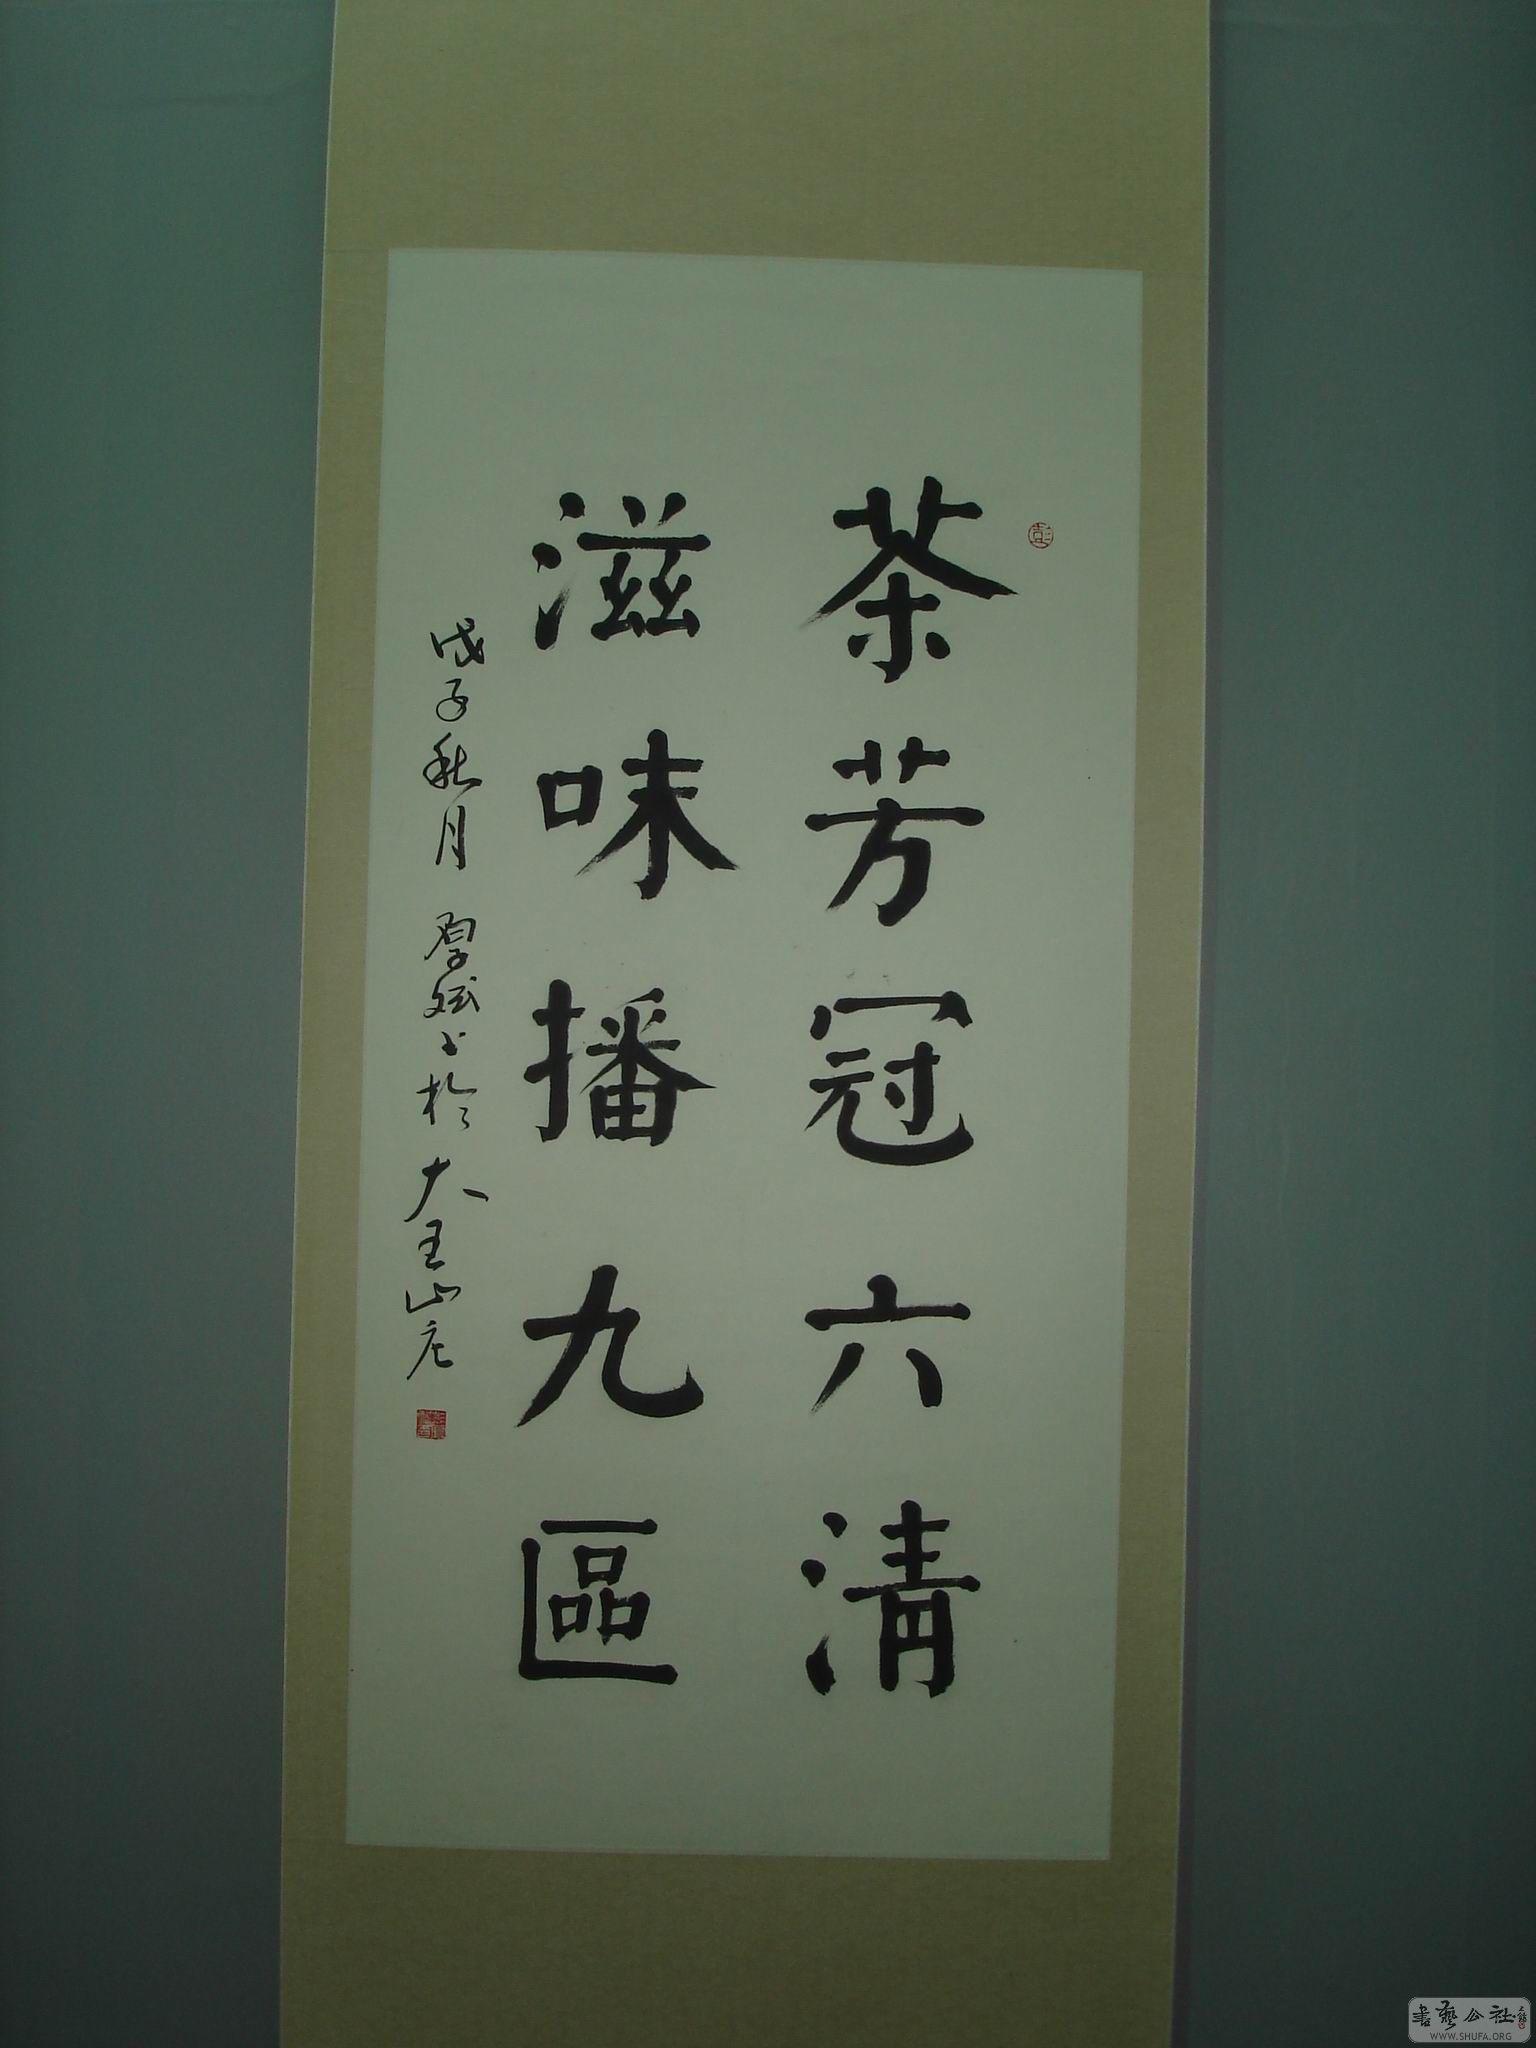 茶芳冠六清
滋味播九區
戊子秋月 厚斌书於大王山庄
書藝公社
WWW.SHUFA.ORG